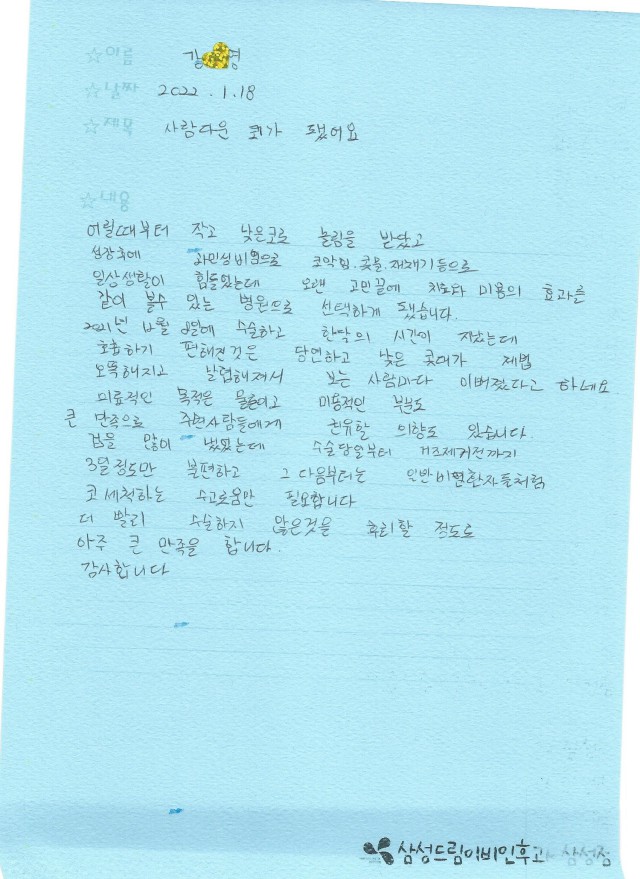 ☆이름 김 영
☆날짜 2022.1.18
☆제목 사람다운 코가 됐어요
☆내용
어릴때부터 작고 낮은코로 놀림을 받았고
성장후에 과민성비염으로 코막힘.콧물.재채기등으로
일상생활이 힘들었는데 오랜 고민끝에 치료와 미용의 효과를
같이 볼수 있는 병원으로 선택하게 됐습니다.
2021년 12월 8일에 수술하고 한달의 시간이 지났는데
호흡하기 편해진것은 당연하고 낮은 콧대가 제법
오똑해지고 날렵해져서 보는 사람마다 이뻐졌다고 하네요
의료적인 목적은 물론이고 미용적인 부분도
큰 만족으로 주변사람들에게 권유할 의향도 있습니다
겁을 많이 냈었는데 수술당일부터 거즈제거전까지
3일정도만 불편하고 그 다음부터는 일반비염환자들처럼
코세척하는 수고로움만 필요합니다
더 빨리 수술하지 않은것을 후회할 정도로
아주 큰 만족을 합니다.
감사합니다
삼성드림이비인후과 삼성점